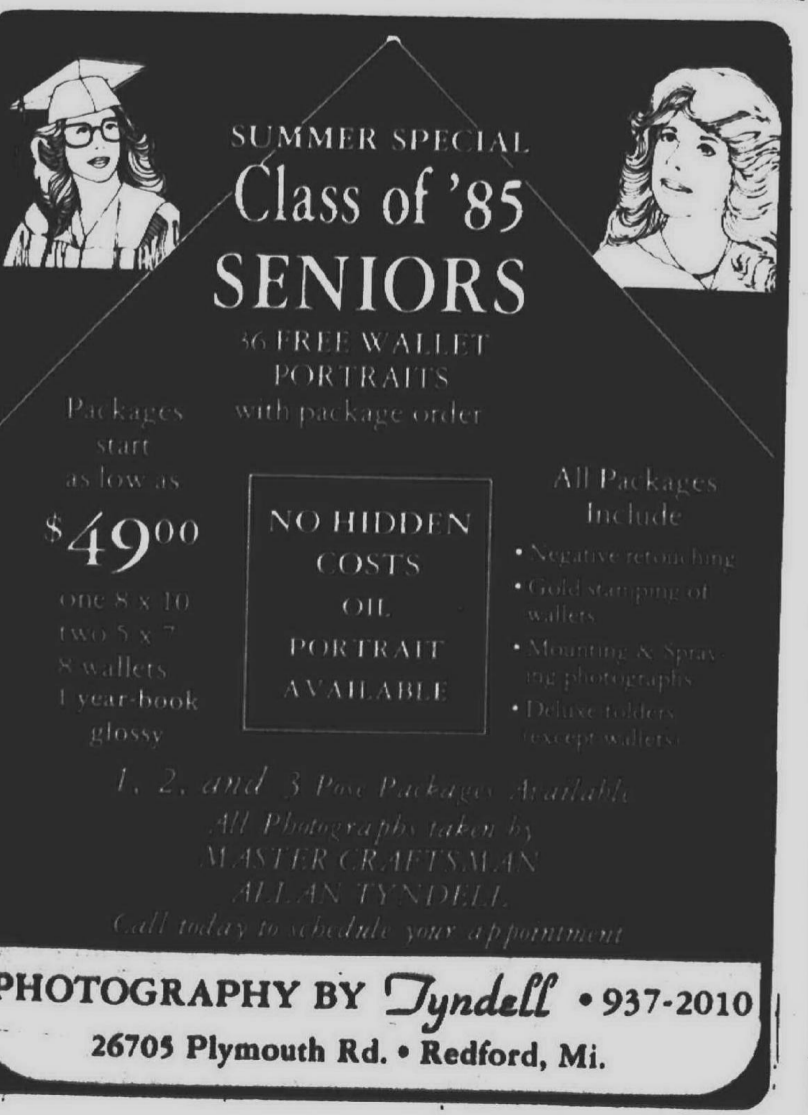 SUMMER SPECIAL
Class of '85
SENIORS
36 FREE WALLET
PORTRAITS
with package order
Packages
start
as low as
$49⁰⁰
one 8 x 10
two 5 x 7
8 wallets
1 year-book
glossy
NO HIDDEN
COSTS
OIL
PORTRAIT
AVAILABLE
All Packages
Include
• Negative retouching
• Gold stamping of
wallets
• Mounting & Spray-
ing photographs
• Deluxe folders
(except wallets)
1, 2, and 3 Pose Packages Available
All Photographs taken by
MASTER CRAFTSMAN
ALLAN TYNDELL
Call today to schedule your appointment
PHOTOGRAPHY BY Tyndell • 937-2010
26705 Plymouth Rd. • Redford, Mi.